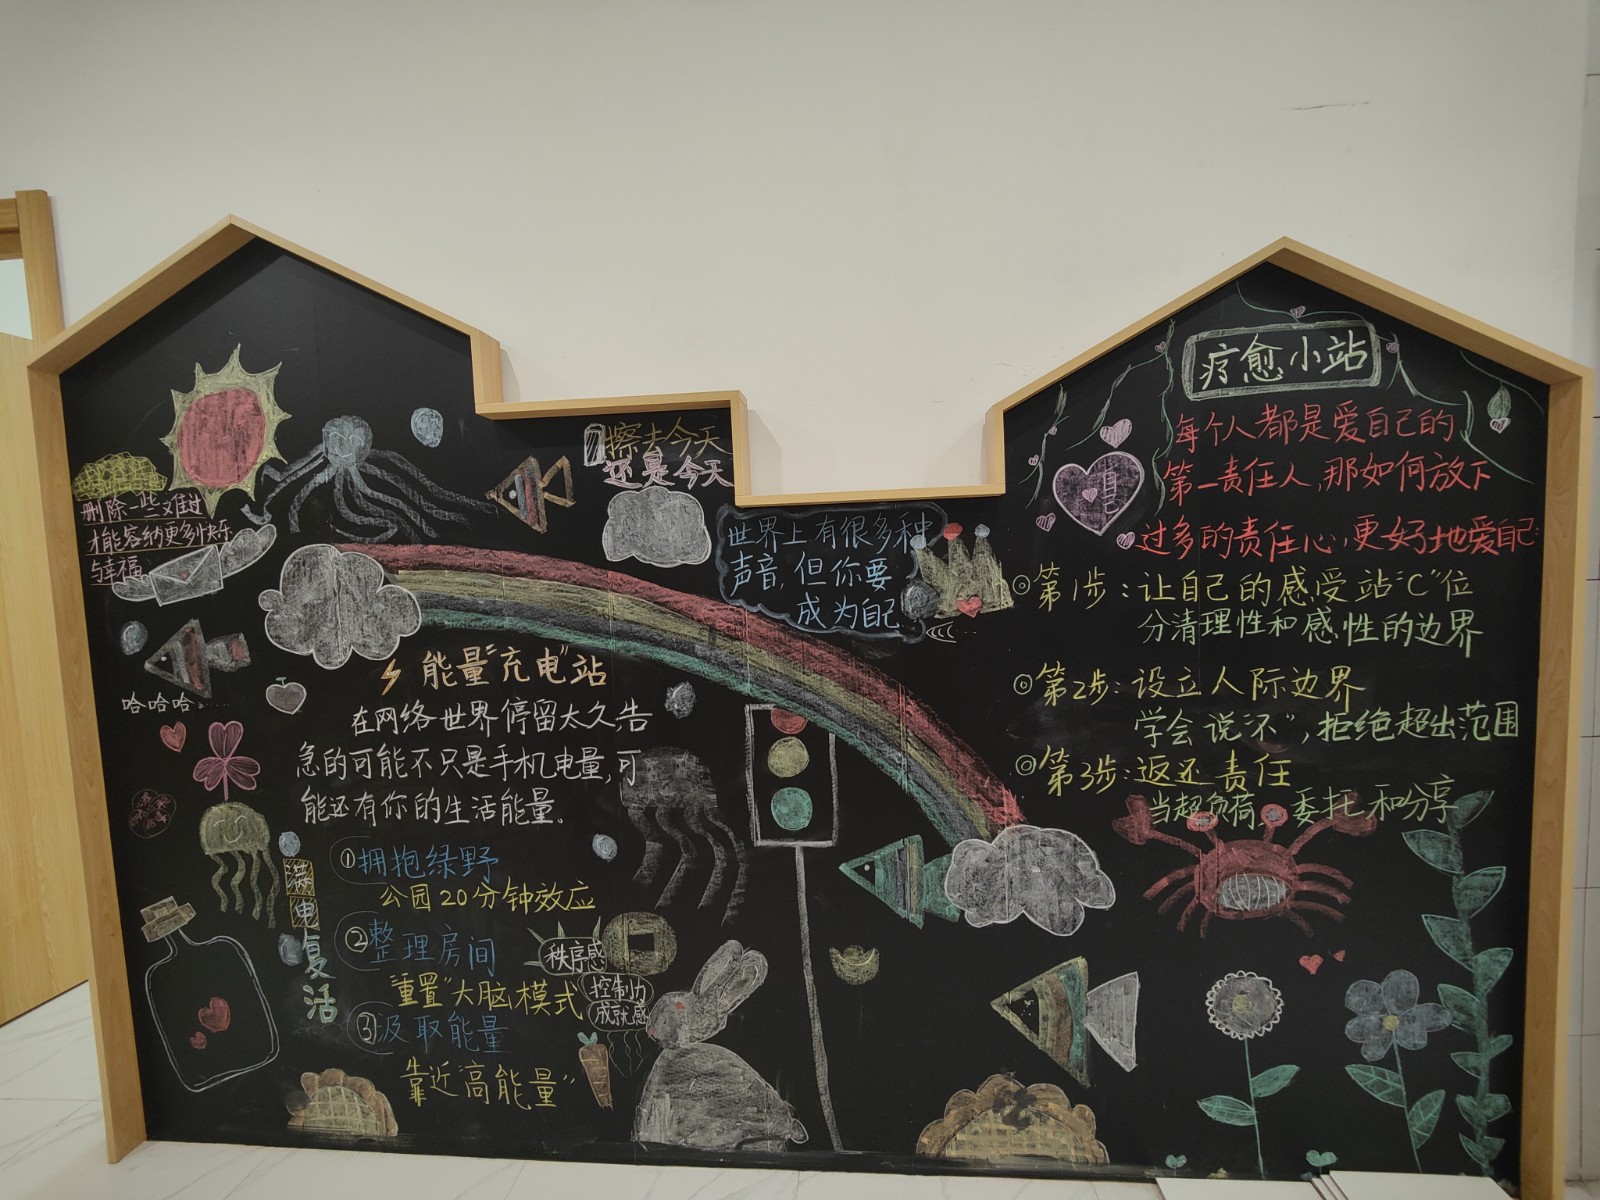 删除一些难过
才能容纳更多快乐
与幸福
哈哈哈……
擦去今天
还是今天
世界上有很多种
声音,但你要
成为自己
能量“充电”站
在网络世界停留太久告
急的可能不只是手机电量,可
能还有你的生活能量。
①拥抱绿野
公园20分钟效应
②整理房间
“重置”大脑模式
秩序感
控制力
成就感
③汲取能量
靠近“高能量”
满电复活
疗愈小站
自己
每个人都是爱自己的
第一责任人,那如何放下
过多的责任心,更好地爱自己
◎第1步:让自己的感受站“C”位
分清理性和感性的边界
◎第2步:设立人际边界
学会说“不”,拒绝超出范围
◎第3步:返还责任
当超负荷。委托和分享